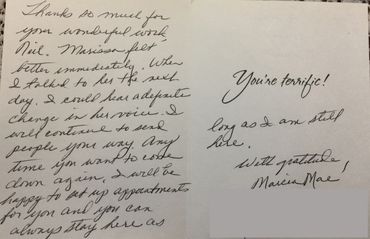 Thanks so much for
your wonderful work
Neil. Marissa felt
better immediately. When
I talked to her the next
day, I could hear a definite
change in her voice. I
will continue to send
people your way. Any
time you want to come
down again, I will be
happy to set up appointments
for you and you can
always stay here as
You're terrific!
long as I am still
here.
With gratitude,
Marcia Mae